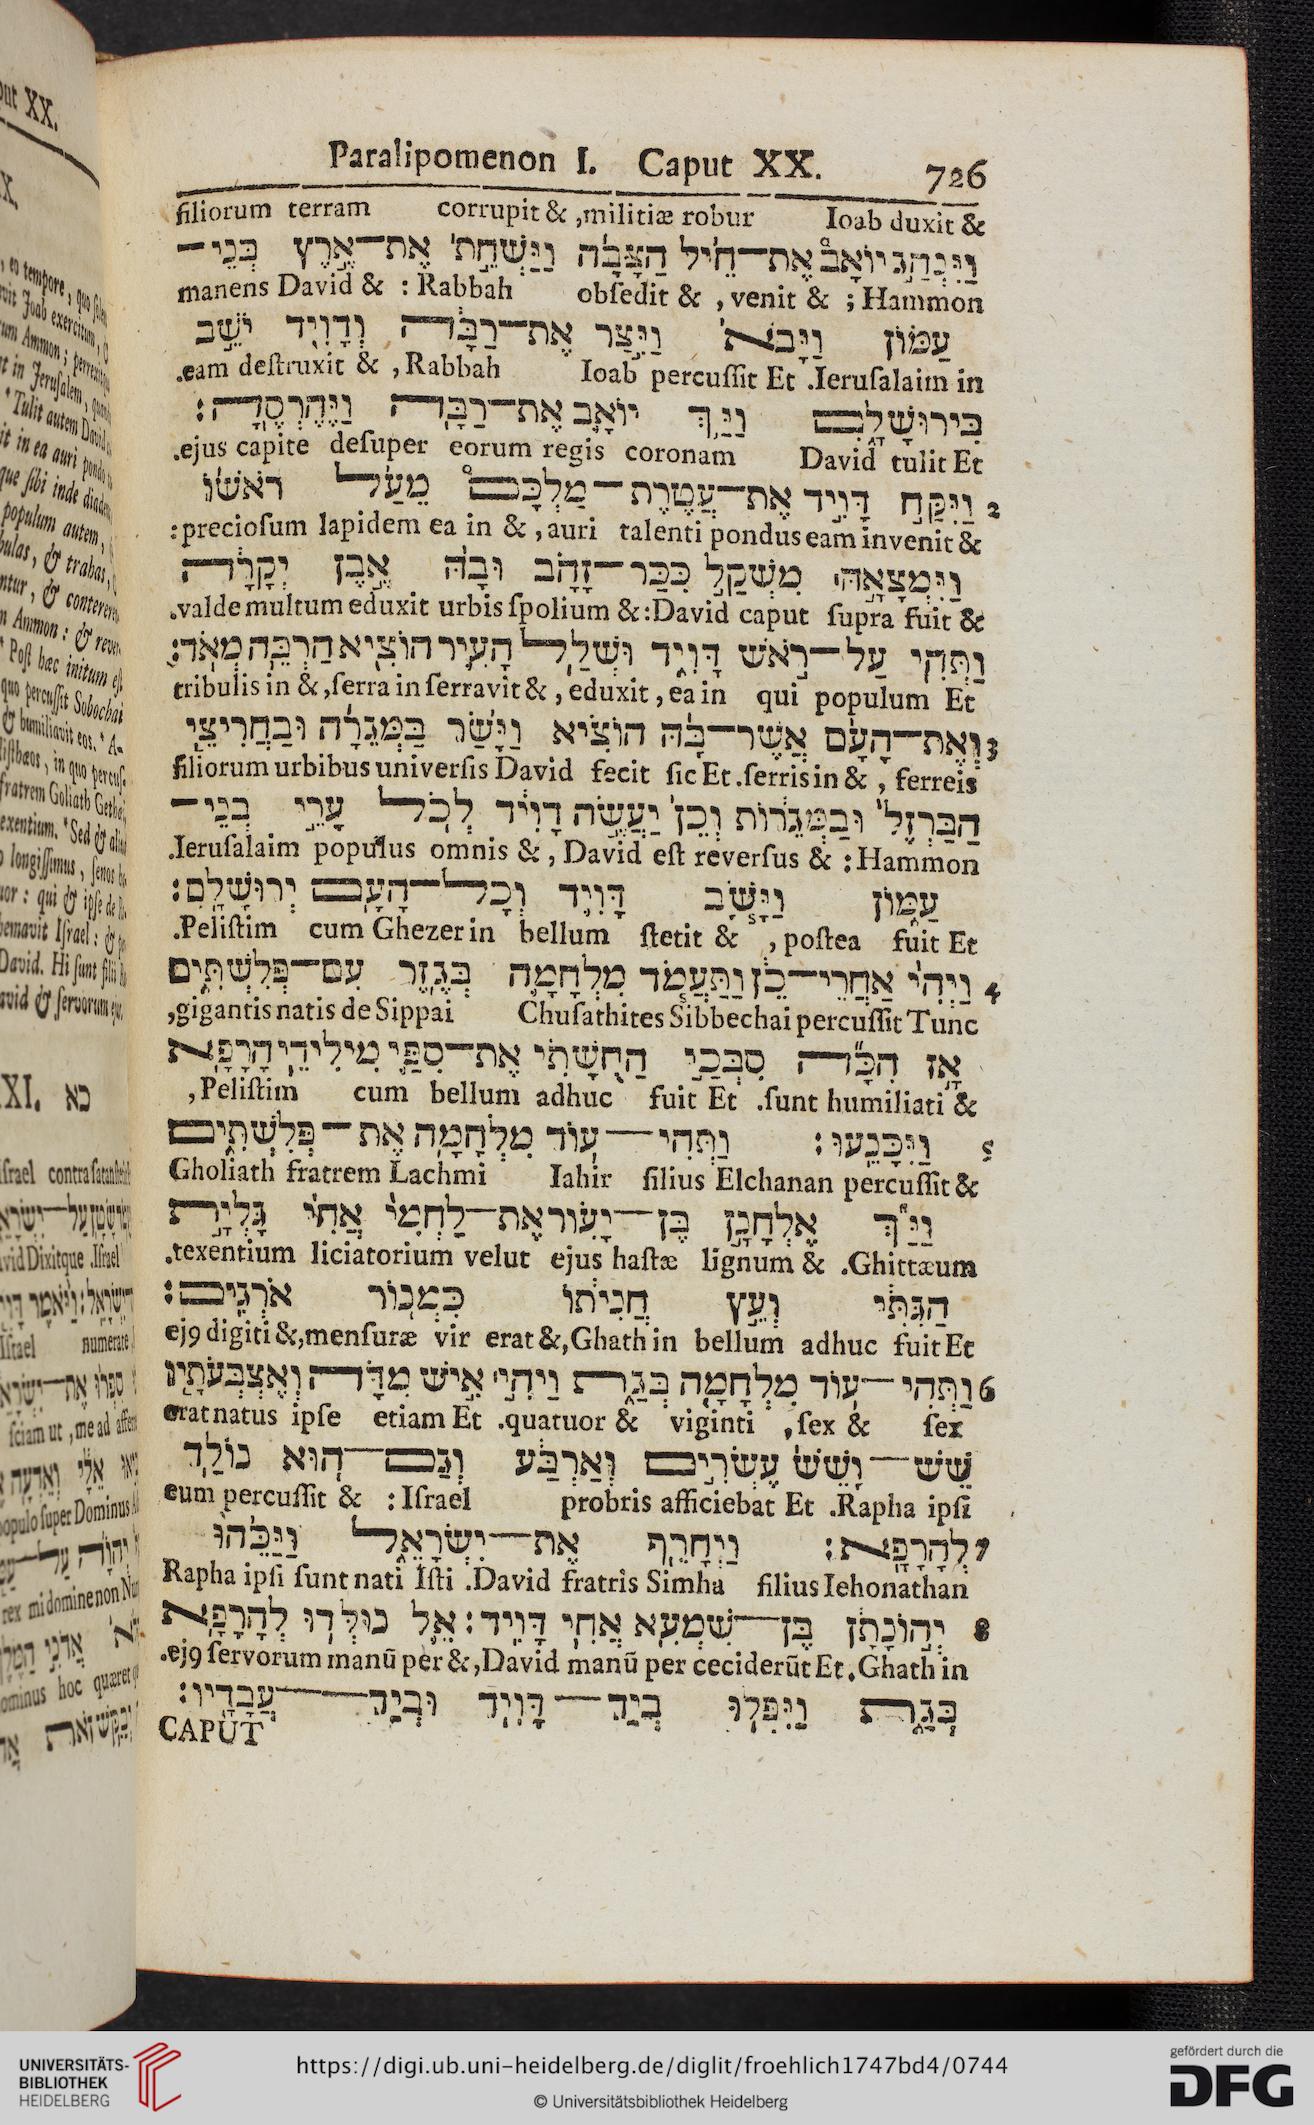 Paralipomenon I. Caput XX. 726
filiorum terram corrupit & ,militiæ robur Ioab duxit &
וַיִּנְהַ֣ג יוֹאָב֩ אֶת־חֵ֨יל הַצָּבָ֜א וַיַּשְׁחֵ֣ת׀ אֶת־אֶ֣רֶץ בְּנֵֽי־
manens David & : Rabbah obſedit & , venit & ; Hammon
עַמּ֗וֹן וַיָּבֹא֙ וַיָּ֣צַר אֶת־רַבָּ֔ה וְדָוִ֖יד יֹשֵׁ֣ב
.eam deſtruxit & , Rabbah Ioab percuſſit Et .Ieruſalaim in
בִּירוּשָׁלִָ֑ם וַיַּ֥ךְ יוֹאָ֛ב אֶת־רַבָּ֖ה וַיֶּֽהֶרְסֶֽהָ׃
.ejus capite deſuper eorum regis coronam David tulit Et
וַיִּקַּ֣ח דָּוִ֣יד אֶת־עֲטֶֽרֶת־מַלְכָּם֩ מֵעַ֨ל רֹאשׁ֜וֹ 2
:precioſum lapidem ea in & , auri talenti pondus eam invenit &
וַֽיִּמְצָאָ֣הּ׀ מִשְׁקַ֣ל כִּכַּר־זָהָ֗ב וּבָהּ֙ אֶ֣בֶן יְקָרָ֔ה
.valde multum eduxit urbis ſpolium & : David caput ſupra fuit &
וַתְּהִ֖י עַל־רֹ֣אשׁ דָּוִ֑יד וּשְׁלַ֥ל הָעִ֛יר הוֹצִ֖יא הַרְבֵּ֥ה מְאֹֽד׃
tribulis in & ,ſerra in ſerravit & , eduxit , ea in qui populum Et
וְאֶת־הָעָ֨ם אֲשֶׁר־בָּ֜הּ הוֹצִ֗יא וַיָּ֨שַׂר בַּמְּגֵרָ֜ה וּבַחֲרִיצֵ֤י 3
filiorum urbibus univerſis David fecit ſic Et .ſerris in & , ferreis
הַבַּרְזֶל֙ וּבַמְּגֵר֔וֹת וְכֵן֙ יַעֲשֶׂ֣ה דָוִ֔יד לְכֹ֖ל עָרֵ֣י בְנֵי־
.Ieruſalaim populus omnis & , David eſt reverſus & : Hammon
עַמּ֑וֹן וַיָּ֧שָׁב דָּוִ֛יד וְכָל־הָעָ֖ם יְרוּשָׁלִָֽם׃
.Peliſtim cum Ghezer in bellum ſtetit & , poſtea fuit Et
וַיְהִי֙ אַחֲרֵי־כֵ֔ן וַתַּעֲמֹ֧ד מִלְחָמָ֛ה בְּגֶ֖זֶר עִם־פְּלִשְׁתִּ֑ים 4
,gigantis natis de Sippai Chuſathites Sibbechai percuſſit Tunc
אָ֣ז הִכָּ֞ה סִבְּכַ֣י הַחֻֽשָׁתִ֗י אֶת־סִפַּ֛י מִילִידֵ֥י הָרְפָאִ֖ים
,Peliſtim cum bellum adhuc fuit Et .ſunt humiliati &
וַיִּכָּנֵֽעוּ׃ וַתְּהִי־ע֥וֹד מִלְחָמָ֖ה אֶת־פְּלִשְׁתִּ֑ים 5
Gholiath fratrem Lachmi Iahir filius Elchanan percuſſit &
וַיַּ֞ךְ אֶלְחָנָ֣ן בֶּן־יָעִ֗ור אֶת־לַחְמִי֙ אֲחִי֙ גָּלְיָ֣ת
.texentium liciatorium velut ejus haſtæ lignum & .Ghittæum
הַגִּתִּ֔י וְעֵ֣ץ חֲנִית֔וֹ כִּמְנ֖וֹר אֹרְגִֽים׃
ejꝰ digiti & ,menſuræ vir erat & ,Ghath in bellum adhuc fuit Et
וַתְּהִי־ע֥וֹד מִלְחָמָ֖ה בְּגַ֑ת וַיְהִ֣י׀ אִ֣ישׁ מִדָּ֗ה וְאֶצְבְּעֹתָ֤יו 6
erat natus ipſe etiam Et .quatuor & viginti , ſex & ſex
שֵׁשׁ־וָשֵׁשׁ֙ עֶשְׂרִ֣ים וְאַרְבַּ֔ע וְגַם־ה֖וּא נוֹלַ֥ד
eum percuſſit & : Iſrael probris afficiebat Et .Rapha ipſi
לְהָרָפָֽא׃ וַיְחָרֵ֖ף אֶת־יִשְׂרָאֵ֑ל וַיַּכֵּ֙הוּ֙ 7
Rapha ipſi ſunt nati Iſti .David fratris Simha filius Iehonathan
יְה֣וֹנָתָ֔ן בֶּן־שִׁמְעָ֖א אֲחִ֥י דָוִֽיד׃ אֵ֛ל נוּלְּד֥וּ לְהָרָפָ֖א 8
.ejꝰ ſervorum manū per & ,David manū per ceciderūt Et .Ghath in
בְּגַ֑ת וַיִּפְּל֥וּ בְיַד־דָּוִ֖יד וּבְיַד־עֲבָדָֽיו׃
CAPUT
UNIVERSITÄTS-
BIBLIOTHEK
HEIDELBERG
https://digi.ub.uni-heidelberg.de/diglit/froehlich1747bd4/0744
© Universitätsbibliothek Heidelberg
gefördert durch die
DFG